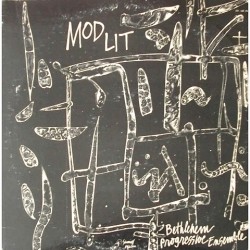 MOD LIT
Bethlehem
Progressive Ensemble